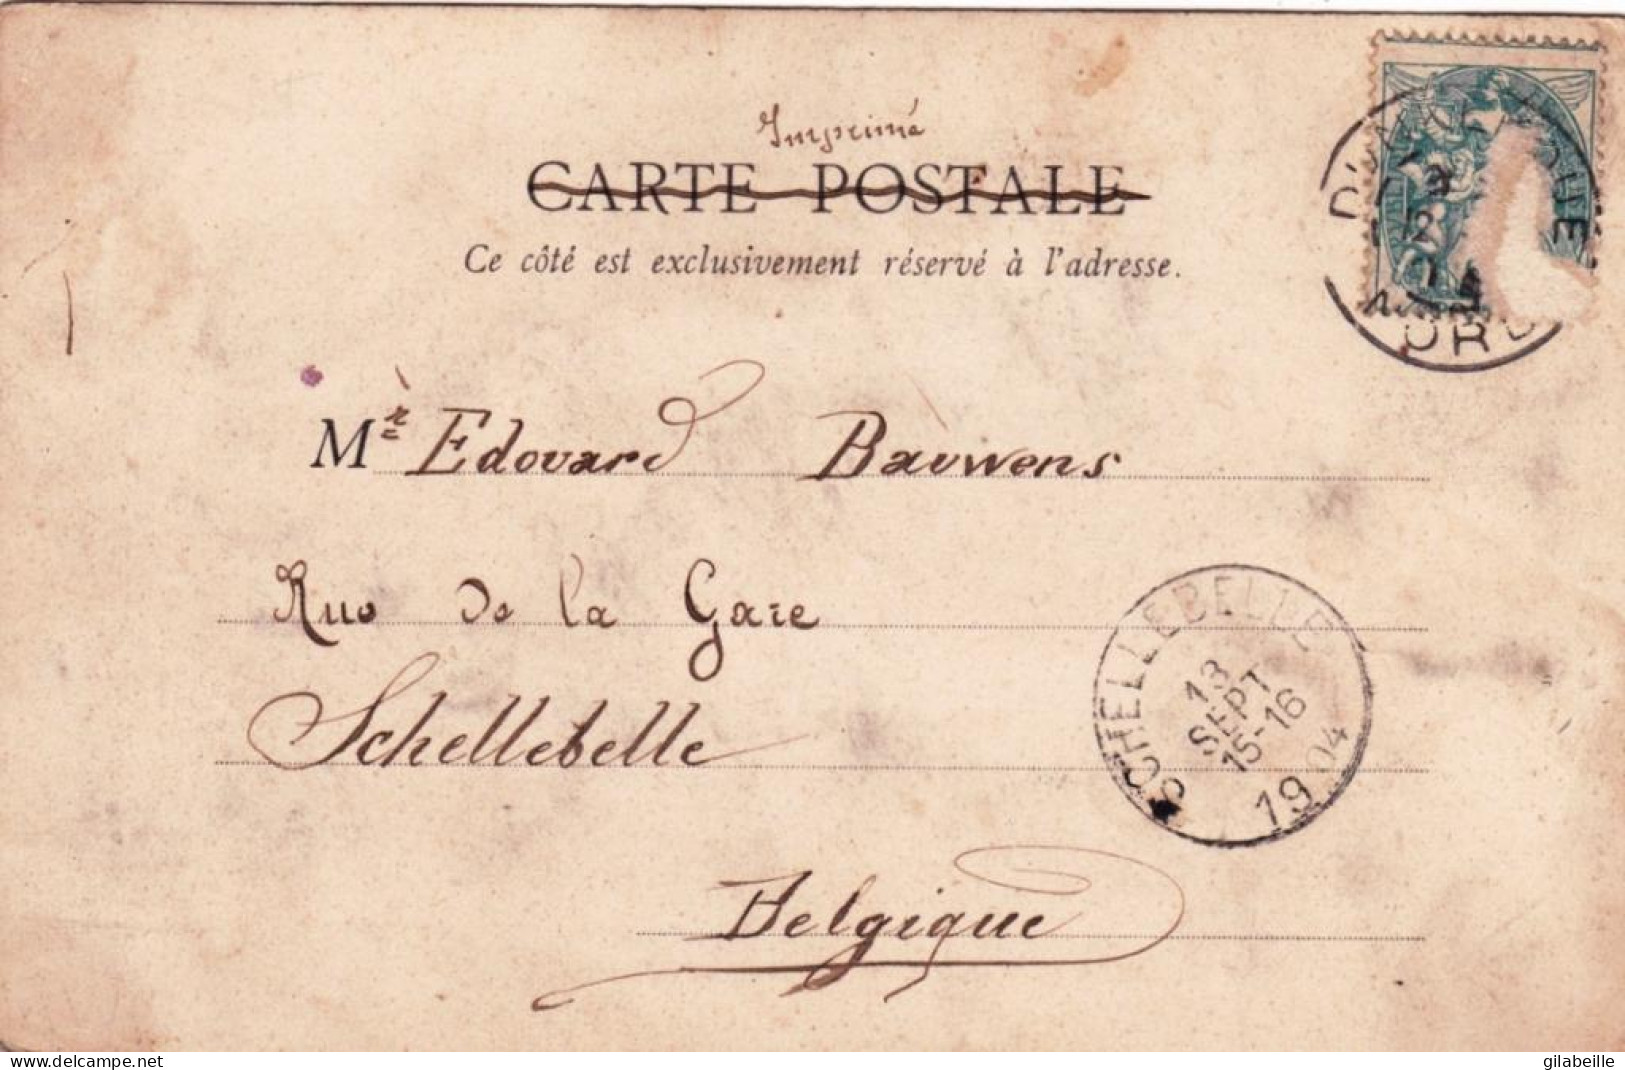 Imprimé
CARTE POSTALE
Ce côté est exclusivement réservé à l'adresse.
Mr Edouard Bauwens
Rue de la Gare
Schellebelle
Belgique
SCHELLEBELLE
13
SEPT
15-16
1904
12
visit my store on delcampe.net
gilabeille